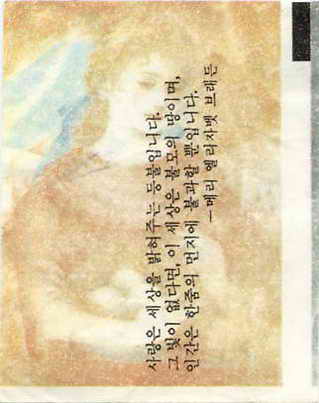 사랑은 세상을 밝혀주는 등불입니다.
그 빛이 없다면, 이 세상은 불모의 땅이며,
인간은 한줌의 먼지에 불과할 뿐입니다.
—메리 엘리자벳 브래든